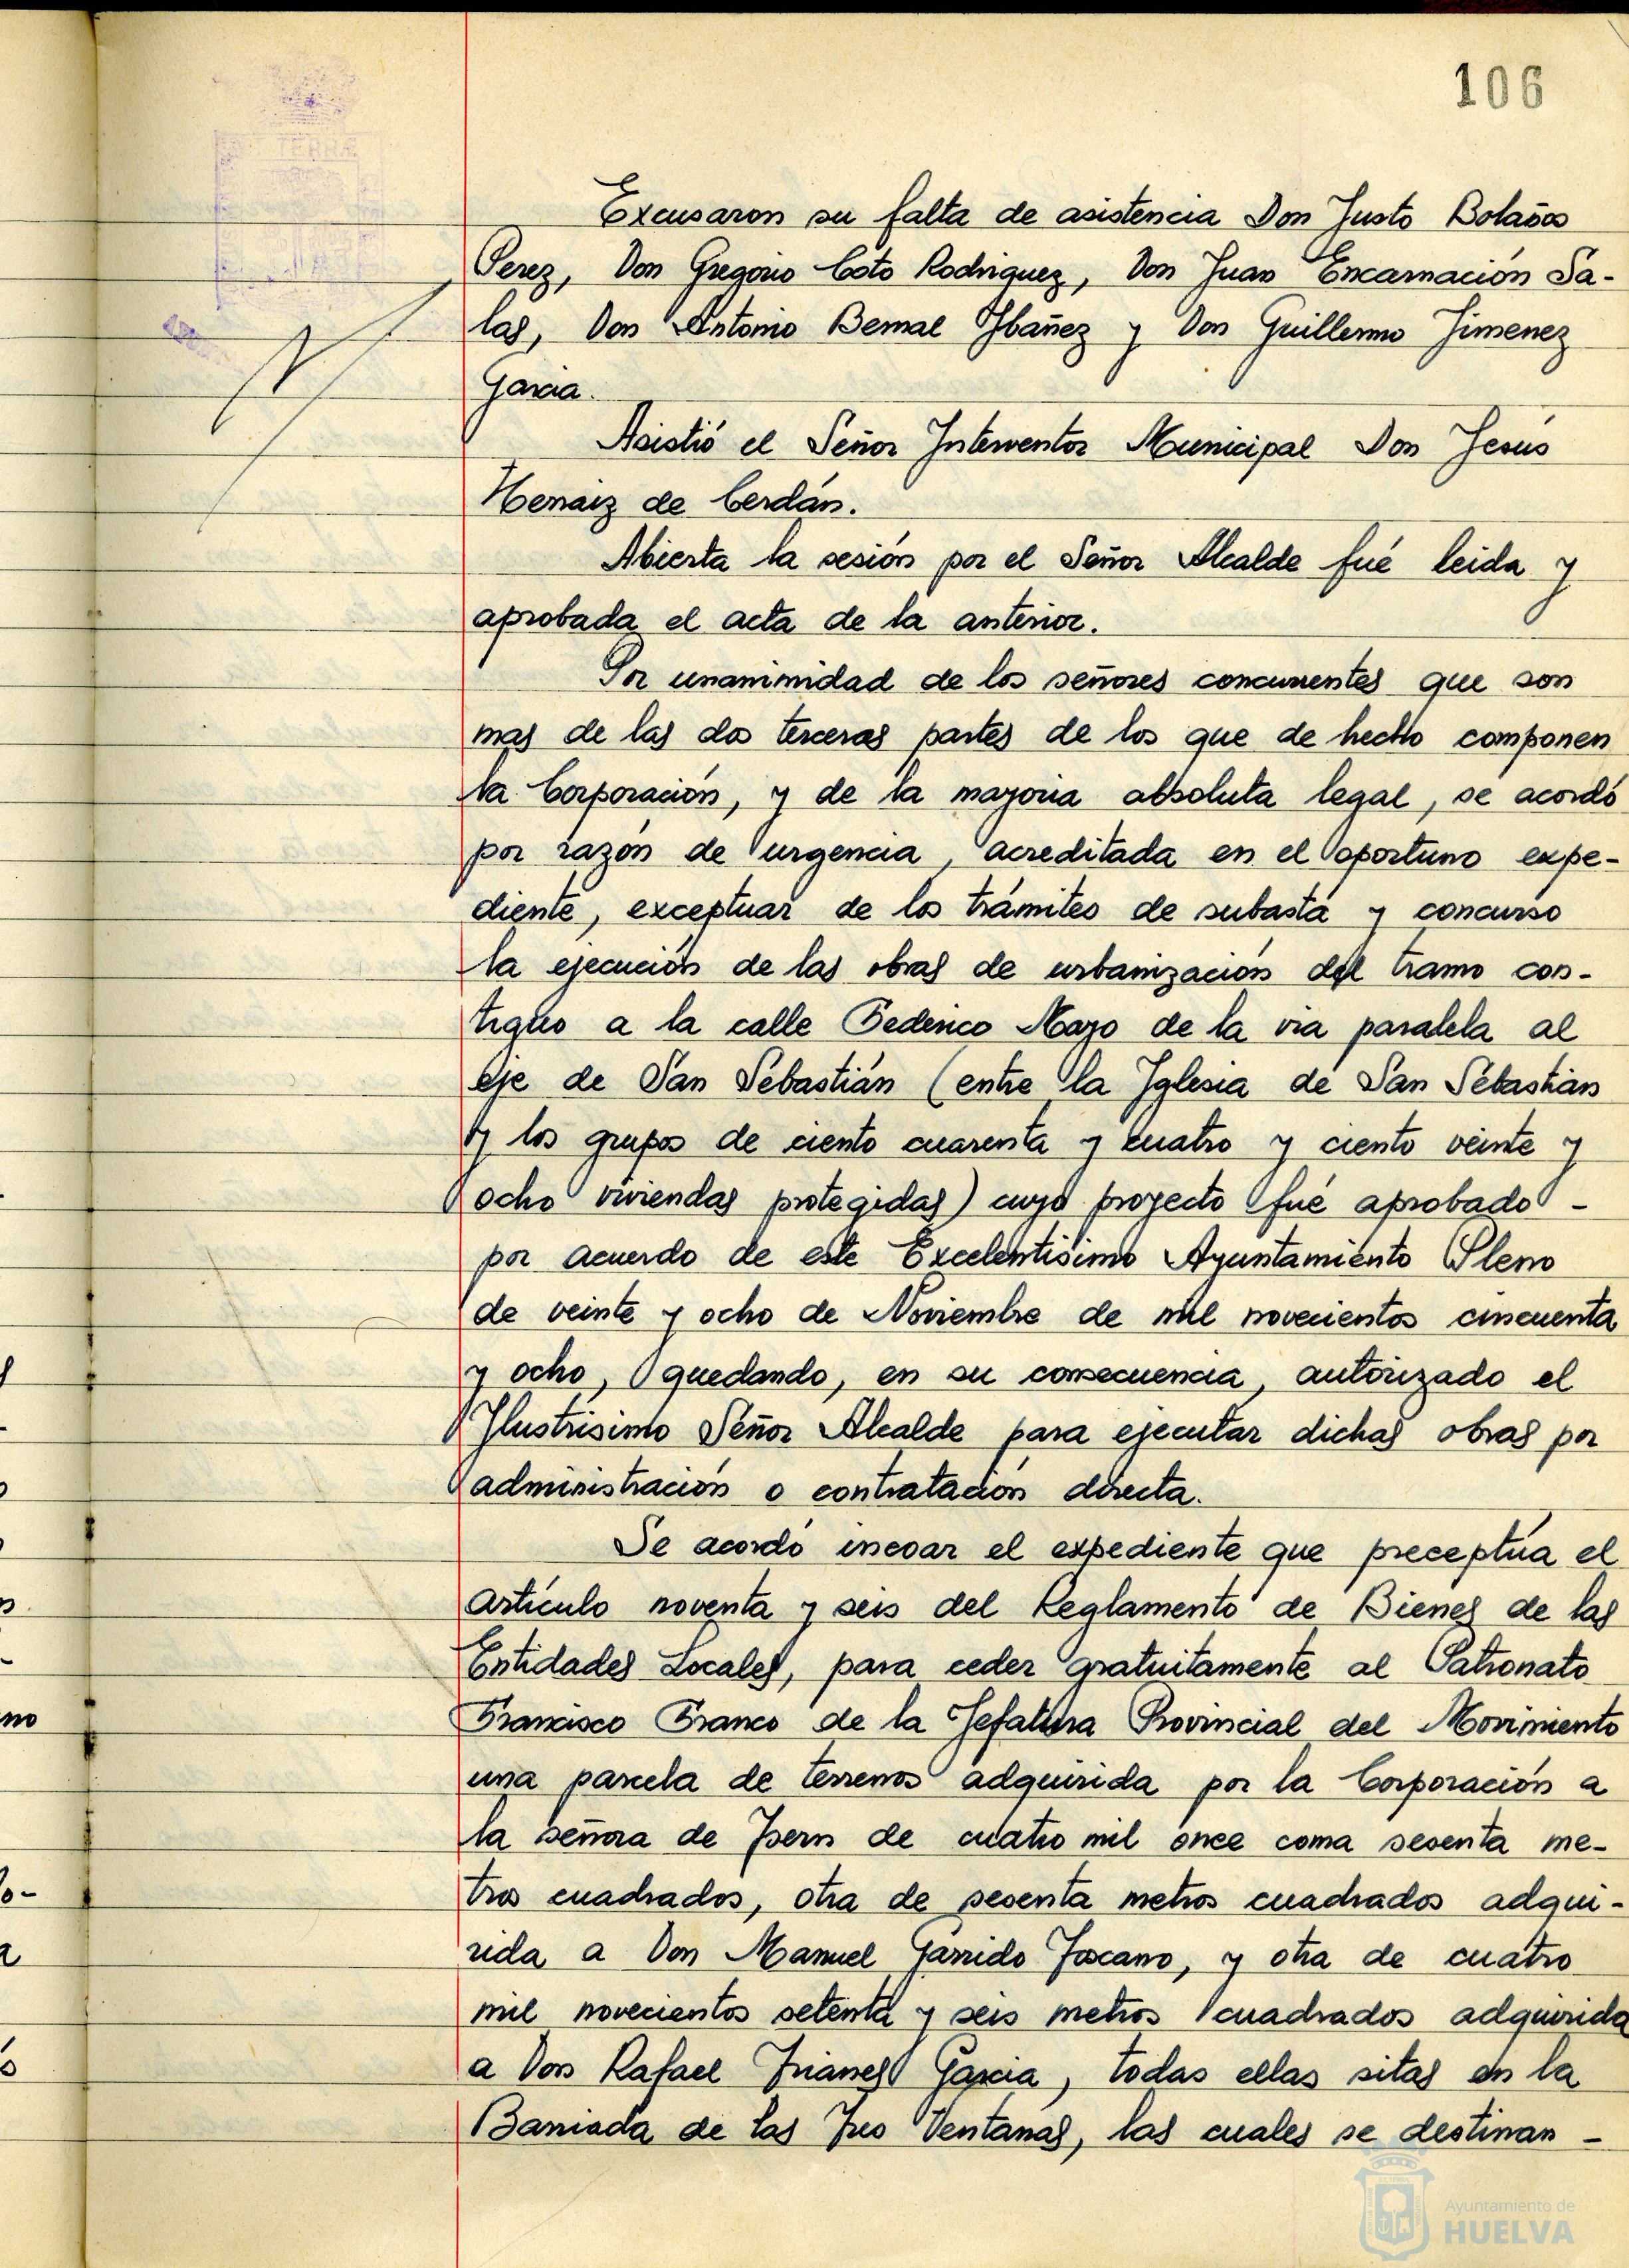 106
Excusaron su falta de asistencia Don Justo Bolaños
Perez, Don Gregorio Coto Rodriguez, Don Juan Encarnación Sa-
las, Don Antonio Bernal Ybañez y Don Guillermo Jimenez
Garcia.
Asistió el Señor Interventor Municipal Don Jesús
Hernaiz de Cerdán.
Abierta la sesión por el Señor Alcalde fué leida y
aprobada el acta de la anterior.
Por unanimidad de los señores concurrentes que son
mas de las dos terceras partes de los que de hecho componen
la Corporación, y de la mayoria absoluta legal, se acordó
por razón de urgencia, acreditada en el oportuno expe-
diente, exceptuar de los trámites de subasta y concurso
la ejecución de las obras de urbanización del tramo con-
tiguo a la calle Federico Mayo de la via paralela al
eje de San Sebastián (entre la Iglesia de San Sebastián
y los grupos de ciento cuarenta y cuatro y ciento veinte y
ocho viviendas protegidas) cuyo proyecto fué aprobado -
por acuerdo de este Excelentisimo Ayuntamiento Pleno
de veinte y ocho de Noviembre de mil novecientos cincuenta
y ocho, quedando, en su consecuencia, autorizado el
Ilustrisimo Señor Alcalde para ejecutar dichas obras por
administración o contratación directa.
Se acordó incoar el expediente que preceptúa el
artículo noventa y seis del Reglamento de Bienes de las
Entidades Locales, para ceder gratuitamente al Patronato
Francisco Franco de la Jefatura Provincial del Movimiento
una parcela de terrenos adquirida por la Corporación a
la señora de Isern de cuatro mil once coma sesenta me-
tros cuadrados, otra de sesenta metros cuadrados adqui-
rida a Don Manuel Garrido Toscano, y otra de cuatro
mil novecientos setenta y seis metros cuadrados adquirida
a Don Rafael Trianes Garcia, todas ellas sitas en la
Barriada de las Tres Ventanas, las cuales se destinan -
Ayuntamiento de
HUELVA